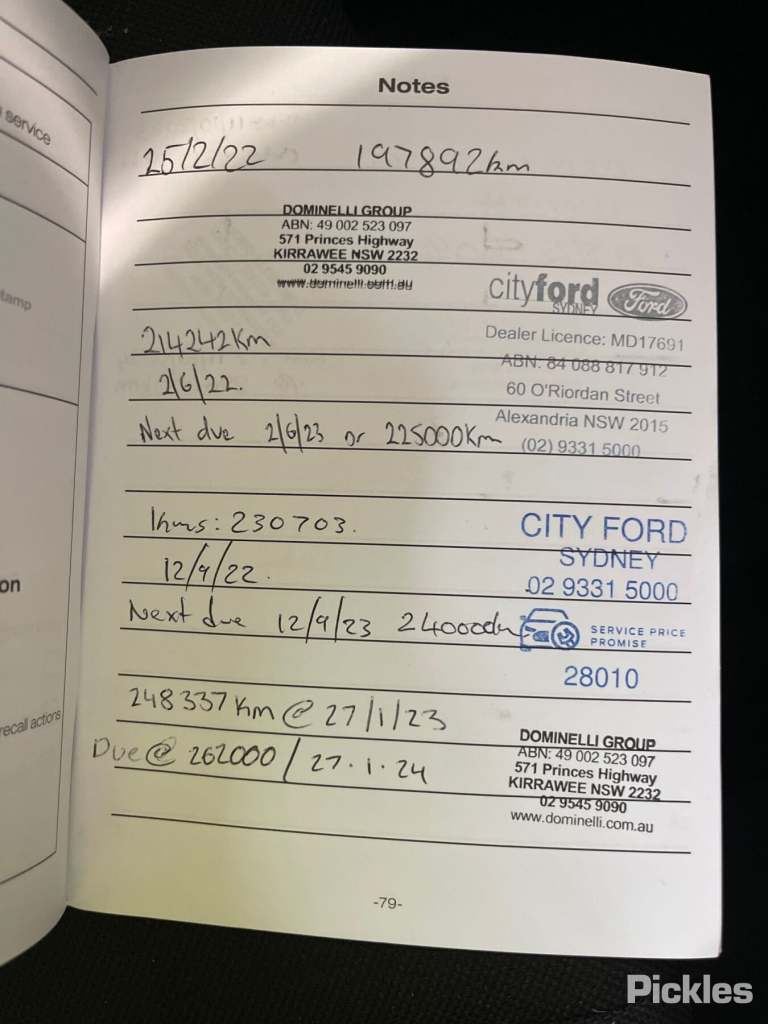 service
stamp
on
recall actions
Notes
25/2/22 197892km
DOMINELLI GROUP
ABN: 49 002 523 097
571 Princes Highway
KIRRAWEE NSW 2232
02 9545 9090
www.dominelli.com.au
cityford Ford
SYDNEY
Dealer Licence: MD17691
ABN: 84 088 817 912
60 O'Riordan Street
Alexandria NSW 2015
(02) 9331 5000
214242Km
2/6/22.
Next due 2/6/23 or 225000Km
kms: 230703.
12/9/22.
Next due 12/9/23
CITY FORD
SYDNEY
02 9331 5000
SERVICE PRICE
PROMISE
28010
248337Km @ 27/1/23
Due @ 262000 / 27.1.24
DOMINELLI GROUP
ABN: 49 002 523 097
571 Princes Highway
KIRRAWEE NSW 2232
02 9545 9090
www.dominelli.com.au
-79-
Pickles